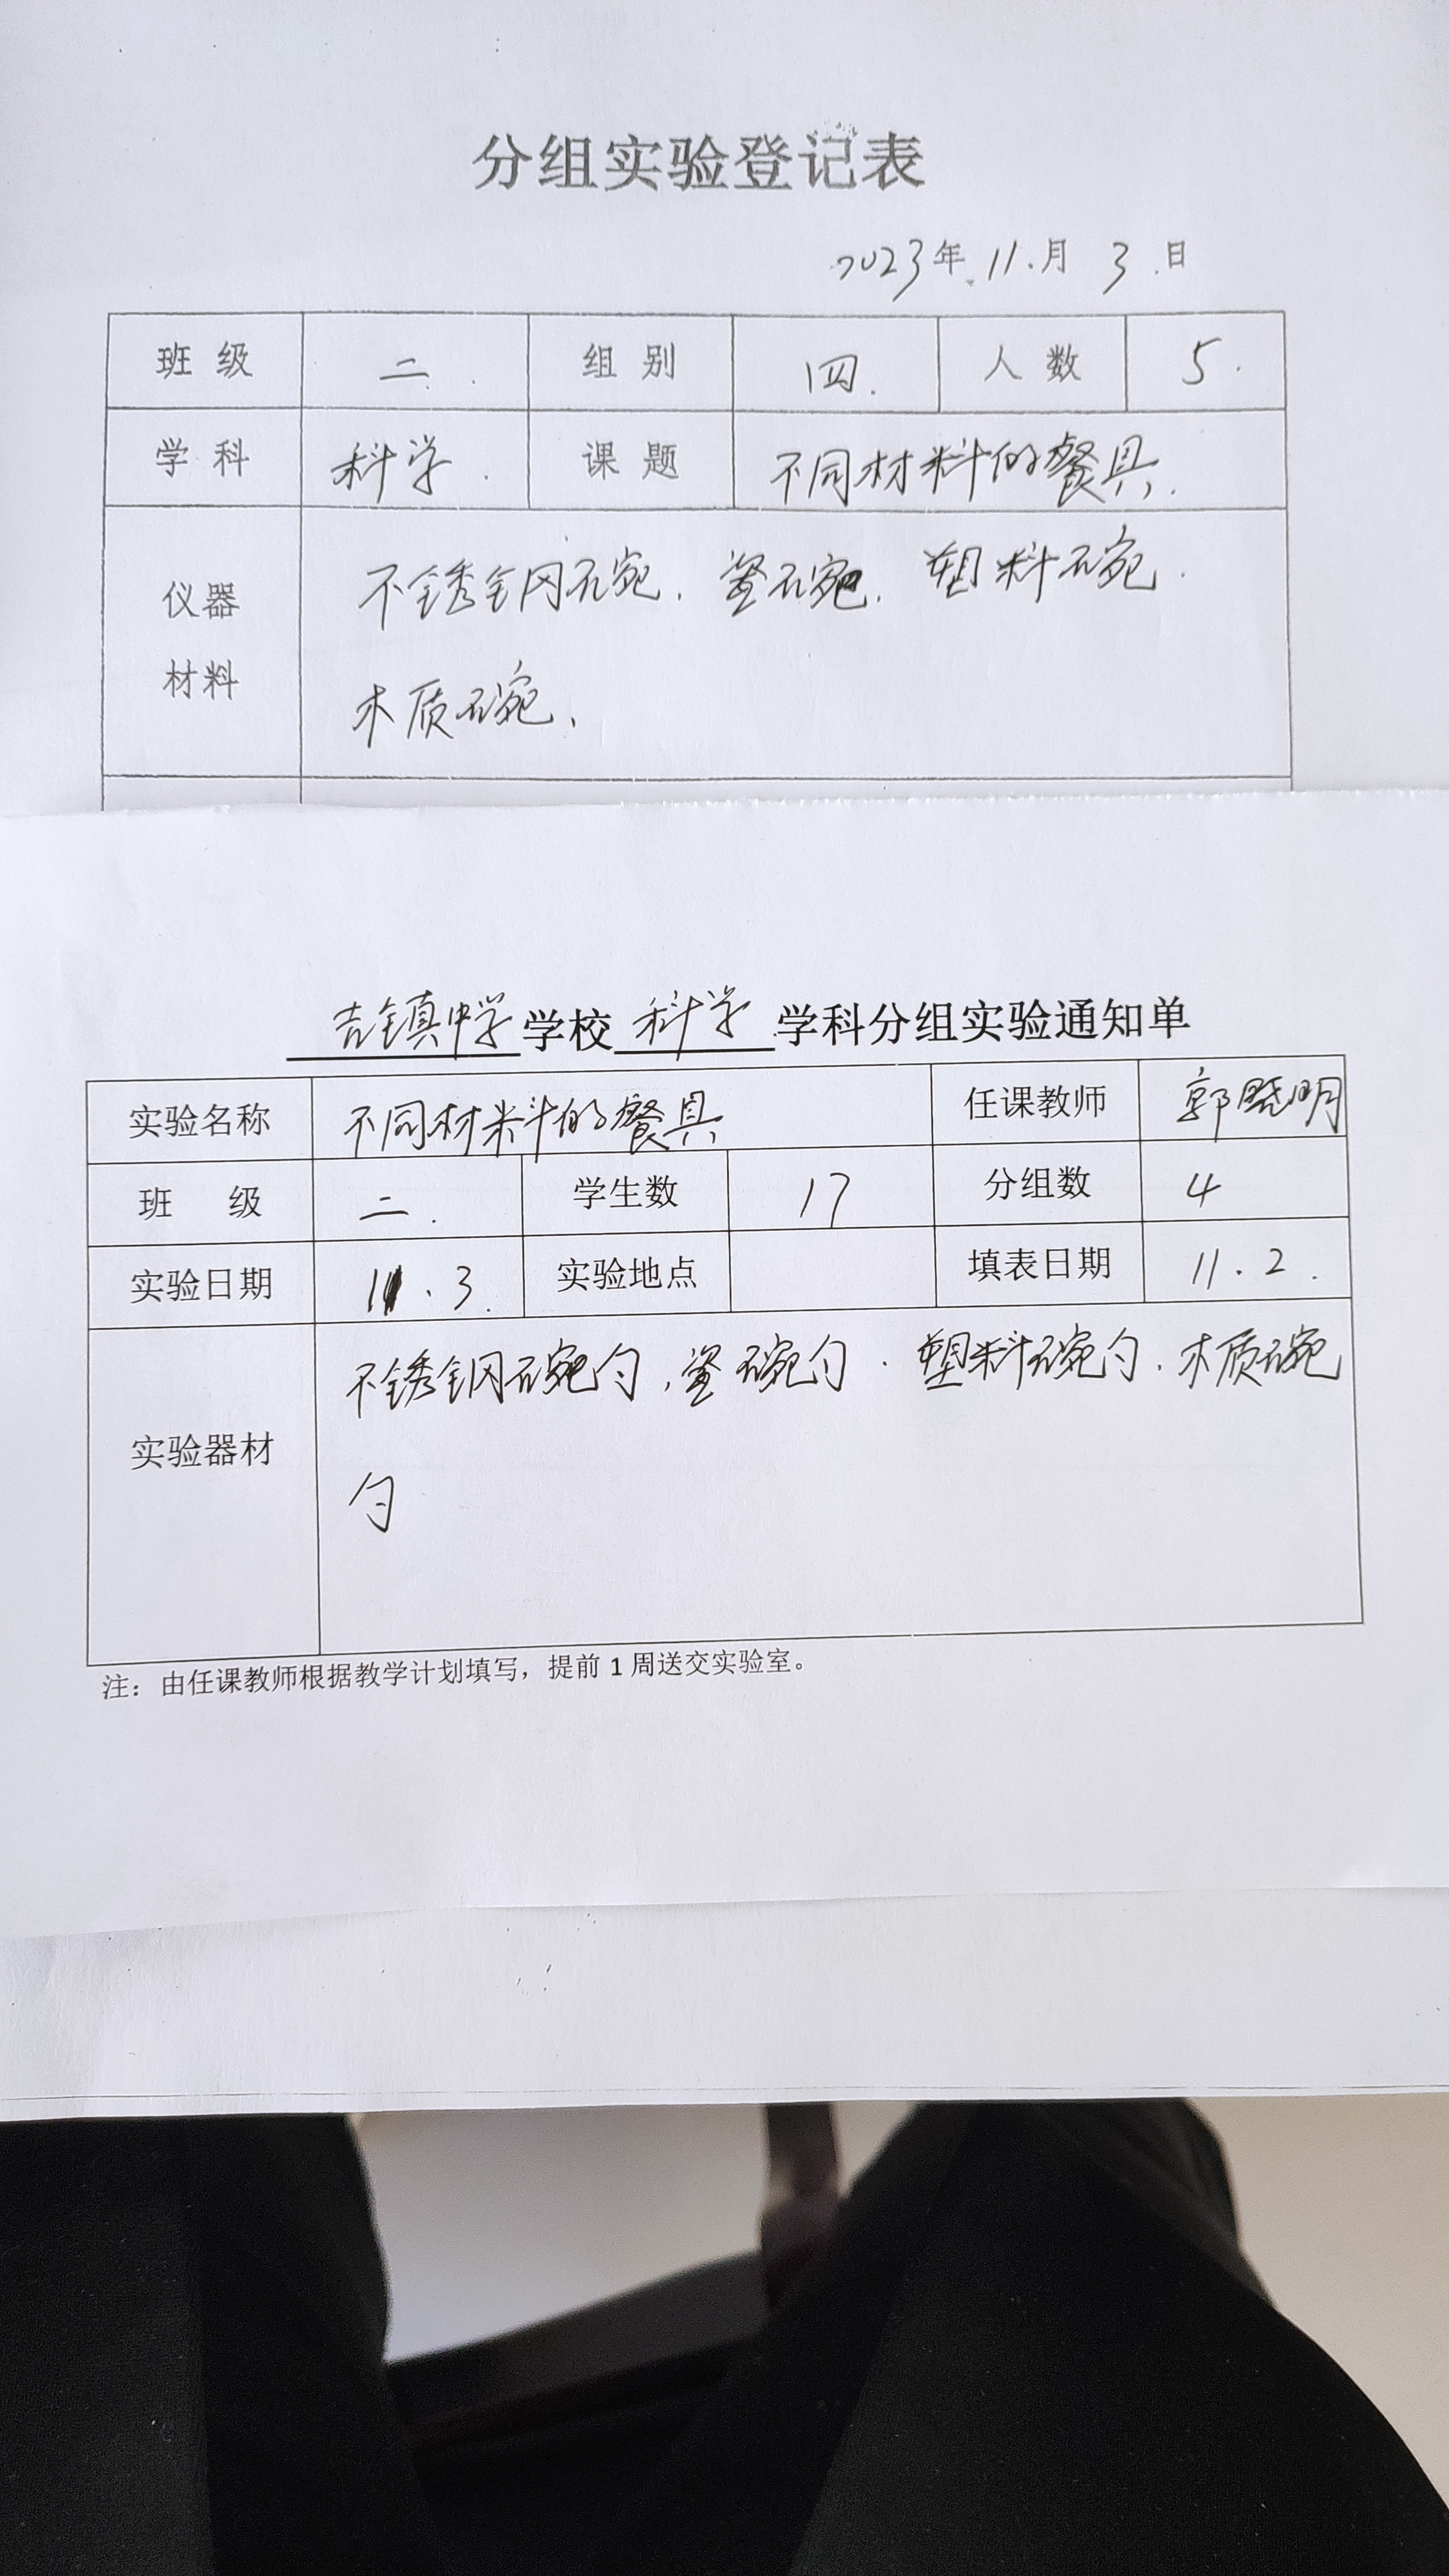 分组实验登记表
2023年 11.月 3.日
班级 二. 组别 四. 人数 5.
学科 科学. 课题 不同材料的餐具.
仪器材料 不锈钢碗. 瓷碗. 塑料碗.
木质碗.
吉镇中学学校科学学科分组实验通知单
实验名称 不同材料的餐具 任课教师 郭晓明
班级 二. 学生数 17 分组数 4
实验日期 11.3. 实验地点 填表日期 11.2.
实验器材 不锈钢碗勺,瓷碗勺.塑料碗勺.木质碗
勺
注：由任课教师根据教学计划填写，提前1周送交实验室。